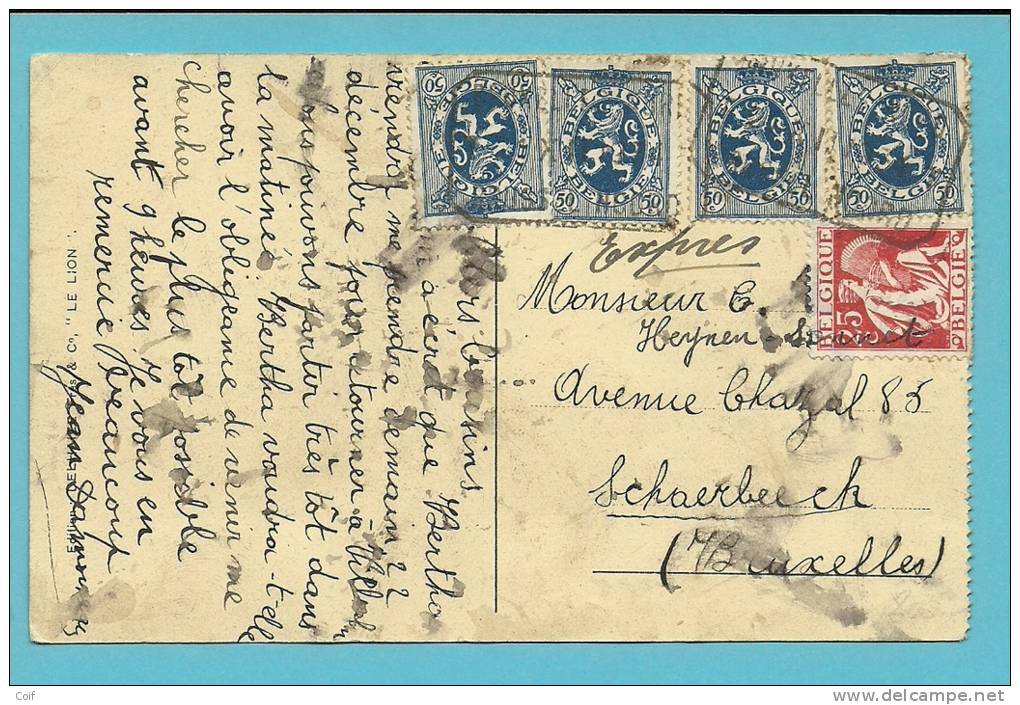 Chers Cousins
a écrit que Bertha
viendra me prendre demain 22
décembre pour retourner à
Nous pouvons partir très tôt dans
la matinée. Bertha voudra-t-elle
avoir l'obligeance de venir me
chercher le plus tôt possible
avant 9 heures. Je vous en
remercie beaucoup
Jean
& Co. " LE LION "
50 BELGIQUE BELGIE 50
BELGIQUE BELGIE
50 50
BELGIQUE BELGIE
50 50
BELGIQUE BELGIE
50 50
BELGIQUE
BELGIE
75
Expres
Monsieur E.
Heynen
Avenue Chazal 85
Schaerbeeck
(Bruxelles)
Coif
www.delcampe.net